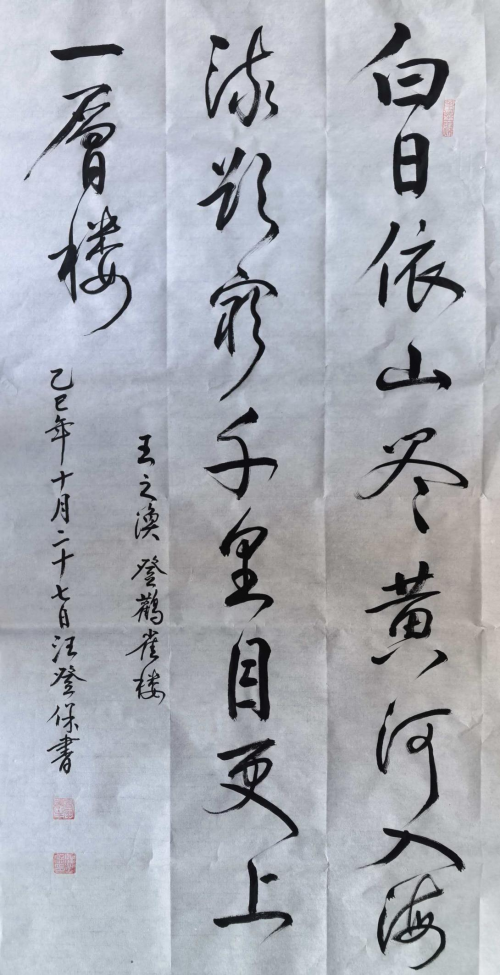 白日依山尽黄河入海
流欲穷千里目更上
一层楼
王之涣登鹳雀楼
乙巳年十月二十七日汪登保書